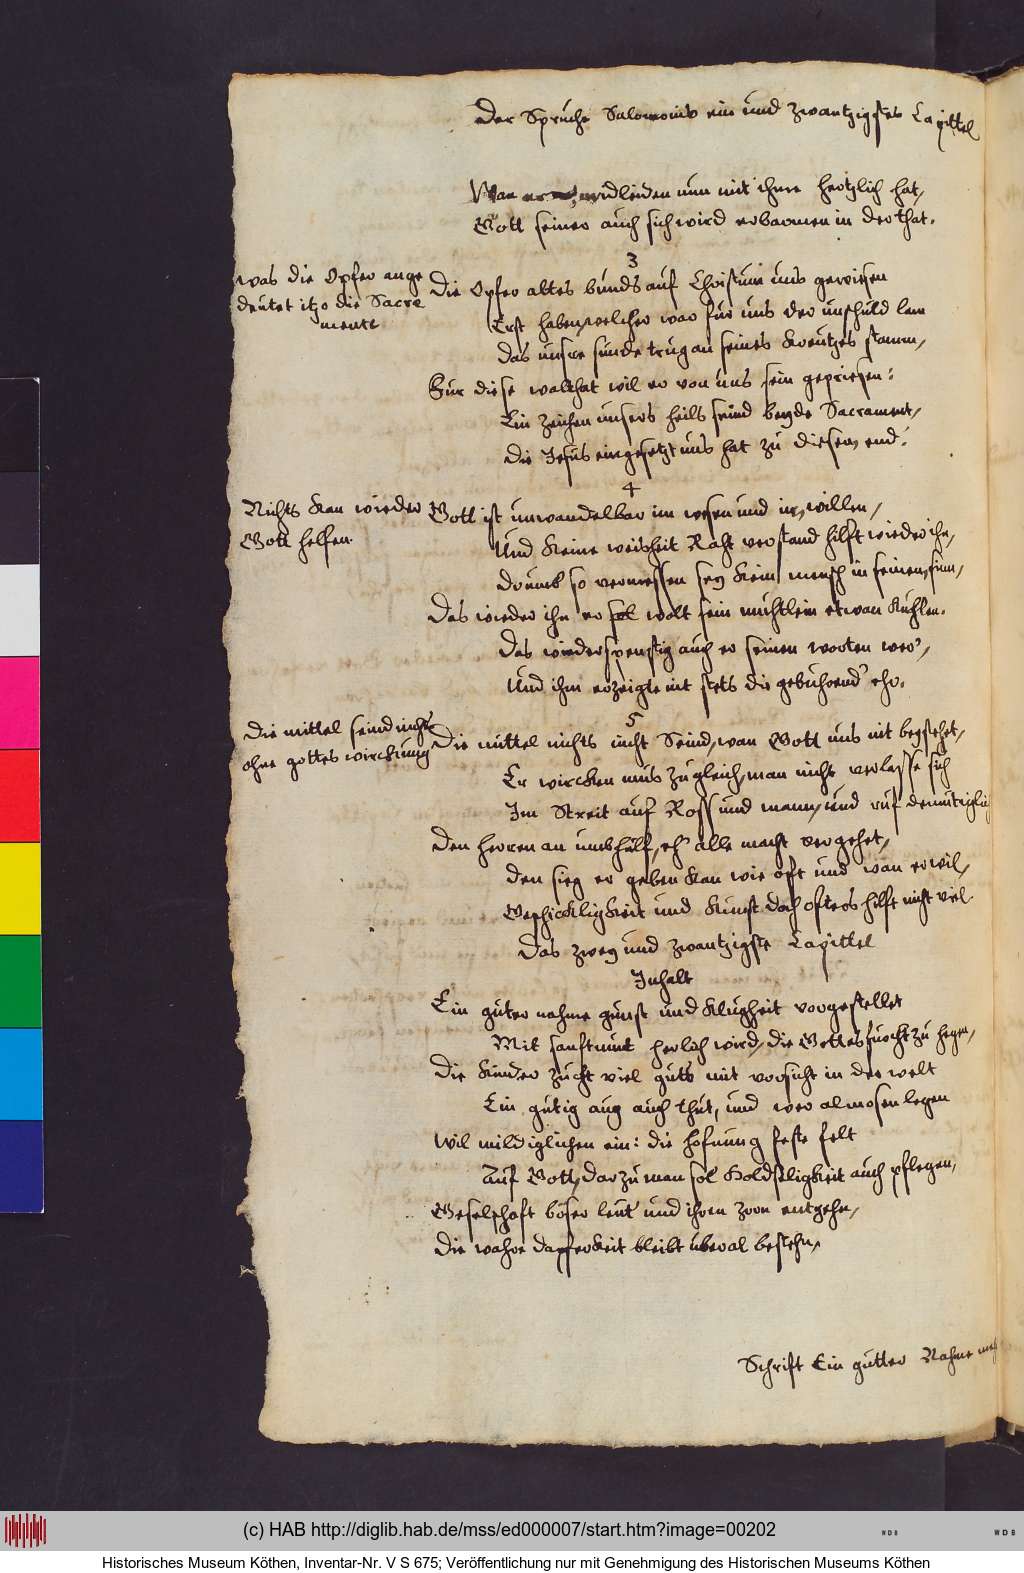 Der Sprüche Salomonis ein und zwantzigstes Capittel
Wan er midleiden nun mit ihme hertzlich hat,
Gott seiner auch sich wird erbarmen in der that.
3
was die Opfer ange
deutet itzo die Sacre
mente
Die Opfer altes bunds auf Christum uns gewiesen
Erst haben, welcher war für uns der unschuld lam
Das unsre sünde trug an seines Kreutzes stamm,
Für diese walthat wil er von uns sein gepriesen:
Ein zeichen unsers heils seind beyde Sacrament,
Die Jesus eingesetzt uns hat zu diesem end.
4
Nichts Kan wieder
Gott helfen.
Gott ist unwandelbar im wesen und im willen,
Und Keine weisheit Raht verstand hilft wieder ihn,
Drumb so vermessen sey Kein mensch in seinem sinn,
Das wieder ihn er sol wolt sein müthlein etwan Kühlen.
Das wiederspenstig auch er seinen worten wer',
Und ihm erzeigte nit stets die gebührend' ehr.
5
Die mittel seind nicht
ohne gottes wirckung
Die mittel nichts nicht Seind, wan Gott uns nit beystehet,
Er wircken mus zugleich, man nicht verlasse sich
Im Streit auf Ross und mann, und ruf demütiglich
Den herren an umb hülf, eh' alle macht vergehet,
Den sieg er geben Kan wie oft und wan er wil,
Geschickligkeit und Kunst doch ofters hilft nicht viel.
Das zwey und zwantzigste Capittel
Inhalt
Ein guter nahme gunst und Klugheit vorgestellet
Mit sanftmut herlich wird, die Gottesfurcht zu hegen,
Die Kinder zucht viel guts mit vorsicht in der welt
Ein gütig aug auch thut, und wer almosen legen
Wil mildiglichen ein: die hofnung feste felt
Auf Gott, darzu man sol Holdseligkeit auch pflegen,
Geselschaft böser leut' und ihrem zorn entgehn,
Die wahre dapferkeit bleibt überal bestehn,
Schrift Ein gutter Nahme
(c) HAB http://diglib.hab.de/mss/ed000007/start.htm?image=00202
WDB
WDB
Historisches Museum Köthen, Inventar-Nr. V S 675; Veröffentlichung nur mit Genehmigung des Historischen Museums Köthen